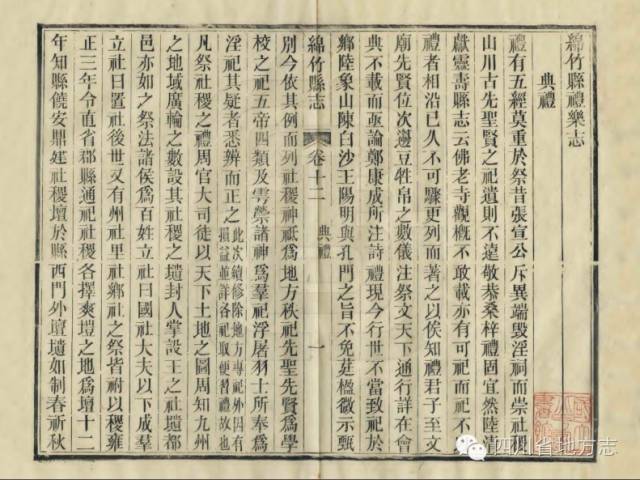 綿竹縣禮樂志
典禮
禮有五經莫重於祭昔張宣公斥異端毀淫祠而崇社稷
山川古先聖賢之祀遺則不遠敬恭桑梓禮固宜然陸清
獻靈壽縣志云佛老寺觀概不敢載亦有可祀而祀不以
禮者相沿已久不可驟更列而著之以俟知禮君子至文
廟先賢位次邊豆牲帛之數儀注祭文天下通行詳在會
典不載而亟論鄭康成所注詩禮現今行世不當致祀於
鄉陸象山陳白沙王陽明與孔門之旨不免莛楹徵示甄
別今依其例而列社稷神祗為地方秩祀先聖先賢為學
綿竹縣志
卷十二
典禮
一
校之祀五帝四類及雩禜諸神為羣祀浮屠羽士所奉為
淫祀其疑者悉辨而正之此次續修除地方專祀外因有
損益並詳各祀取便習禮故也
凡祭社稷之禮周官大司徒以天下土地之圖周知九州
之地域廣輪之數設其社稷之壝封人掌設王之社壝都
邑亦如之祭法諸侯為百姓立社曰國社大夫以下成羣
立社曰置社後世又有州社里社鄉社之祭皆祔以稷雍
正三年令直省郡縣通祀社稷各擇爽塏之地為壇十二
年知縣饒安鼎建社稷壇於縣西門外壇壝如制春祈秋
四川省地方志